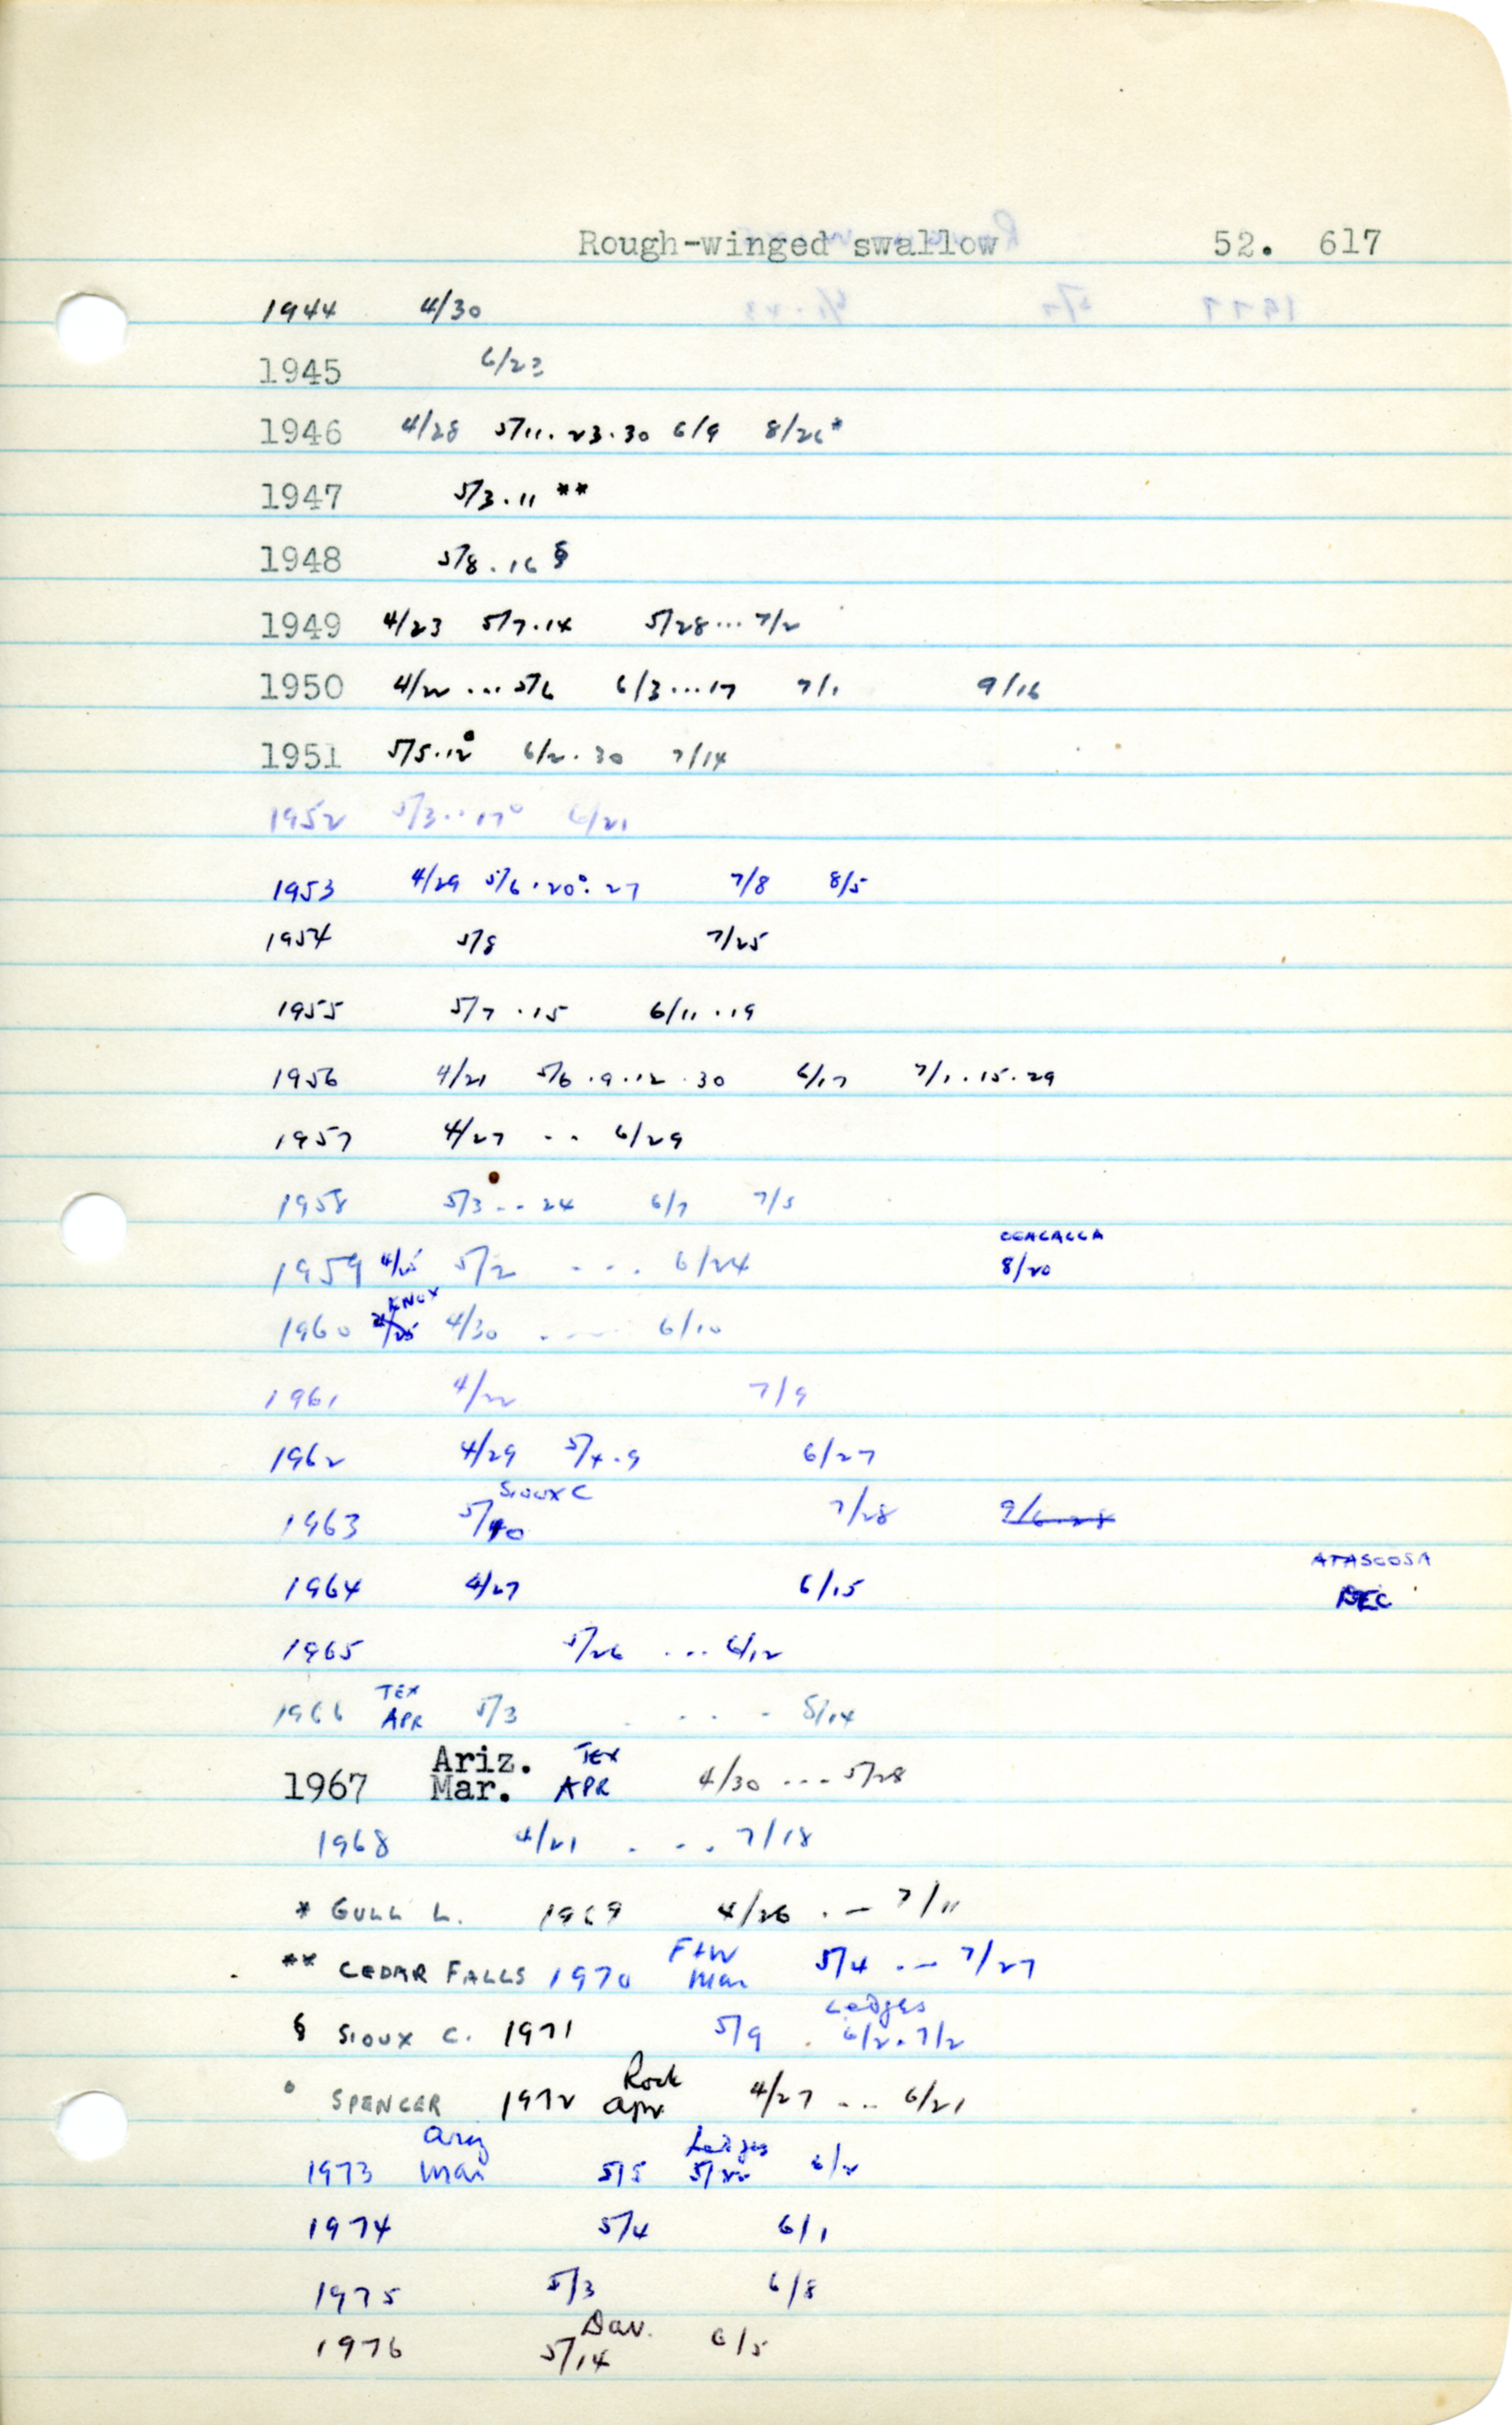 Rough-winged swallow 52. 617
1944 4/30
1945 6/23
1946 4/28 5/11.23.30 6/9 8/26*
1947 5/3.11 **
1948 5/8.16 §
1949 4/23 5/7.14 5/28...7/2
1950 4/22...5/6 6/3...17 7/1 9/16
1951 5/5.12° 6/2.30 7/14
1952 5/3...17° 6/21
1953 4/29 5/6.20°.27 7/8 8/5
1954 5/8 7/25
1955 5/7.15 6/11.19
1956 4/21 5/6.9.12.30 6/17 7/1.15.29
1957 4/27 .. 6/29
1958 5/3...24 6/7 7/5
OGALALLA
1959 4/25 5/2 .... 6/24 8/20
KNOX
1960 4/25 4/30 .... 6/10
1961 4/22 7/9
1962 4/29 5/4.9 6/27
SIOUX C
1963 5/10 7/28 9/6.28
ATASCOSA
1964 4/27 6/15 DEC
1965 5/26 ... 6/12
TEX
1966 APR 5/3 .... 8/14
Ariz. TEX
1967 Mar. APR 4/30 ... 5/28
1968 4/21 ... 7/18
* GULL L. 1969 4/26 ... 7/11
F+W
** CEDAR FALLS 1970 Mar 5/4 ... 7/27
Ledges
§ SIOUX C. 1971 5/9 . 6/2.7/2
Rock
° SPENCER 1972 apr 4/27 ... 6/21
Ariz Ledges
1973 Mar 5/5 5/22 6/2
1974 5/4 6/1
1975 5/3 6/8
Dav.
1976 5/14 6/5